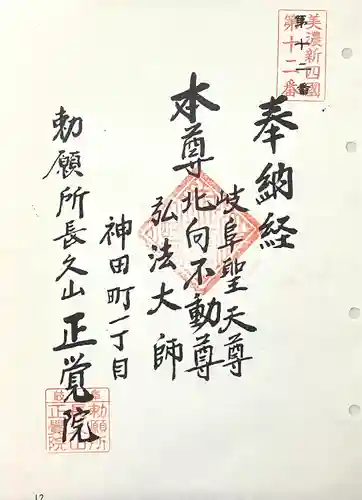 美濃新四國
第十二番
奉納経
岐阜聖天尊
本尊北向不動尊
弘法大師
神田町一丁目
勅願所長久山正覚院
12